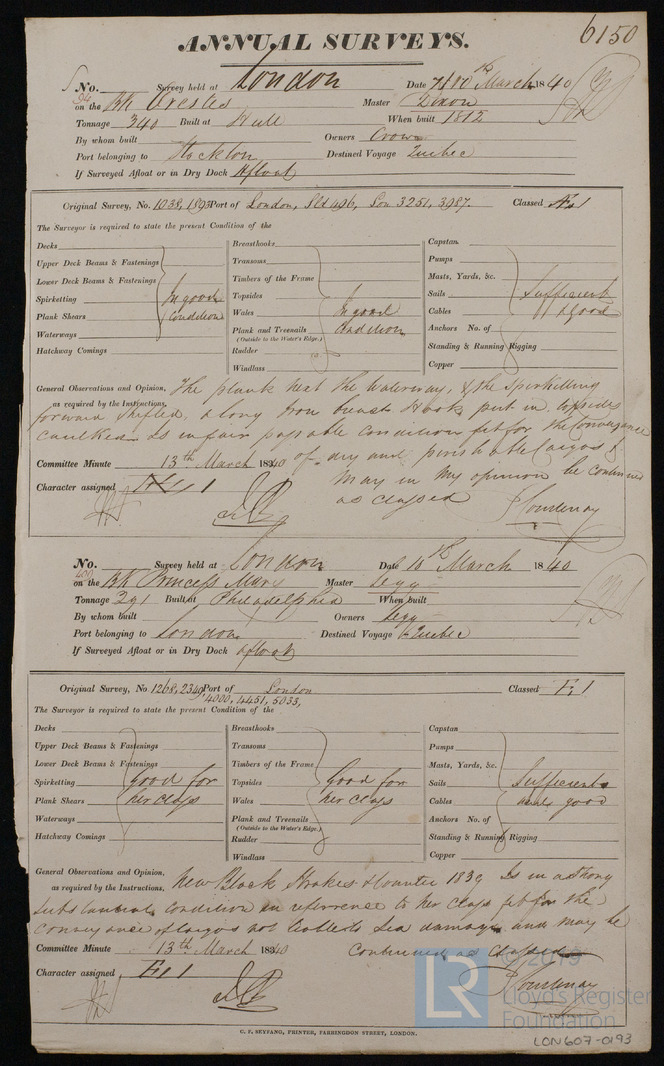 6150
ANNUAL SURVEYS.
No. Survey held at London Date March 1840
on the Bk Orestes Master Dixon
Tonnage 340 Built at Hull When built 1812
By whom built Owners Crow
Port belonging to Stockton Destined Voyage Quebec
If Surveyed Afloat or in Dry Dock Afloat
Original Survey, No. 1038, 1893 Port of London, Sld 496, Lon 3251, 3987. Classed Æ 1
The Surveyor is required to state the present Condition of the
Decks
Upper Deck Beams & Fastenings
Lower Deck Beams & Fastenings
Spirketting In good
Plank Shears Condition
Waterways
Hatchway Comings
Breasthooks
Transoms
Timbers of the Frame
Topsides
Wales In good
Plank and Treenails Condition
(Outside to the Water's Edge.)
Rudder
Windlass
Capstan
Pumps
Masts, Yards, &c.
Sails Sufficient
Cables & good
Anchors No. of
Standing & Running Rigging
Copper
General Observations and Opinion, The plank next the Waterway, & the Spirketting
as required by the Instructions,
forward shifted, a long iron breast Hook put in, topsides
caulked. Is in fair passable condition fit for the conveyance
of dry and perishable Cargos &
Committee Minute 13th March 1840
may in my opinion be continued
Character assigned Æ 1
as classed
P Courtenay
No. Survey held at London Date 10th March 1840
400
on the Bk Princess Mary Master Legg
Tonnage 391 Built at Philadelphia When built
By whom built Owners Legg
Port belonging to London Destined Voyage Quebec
If Surveyed Afloat or in Dry Dock Afloat
Original Survey, No. 1268, 2349, Port of London Classed E. 1
4000, 4451, 5033,
The Surveyor is required to state the present Condition of the
Decks
Upper Deck Beams & Fastenings
Lower Deck Beams & Fastenings
Spirketting Good for
Plank Shears her class
Waterways
Hatchway Comings
Breasthooks
Transoms
Timbers of the Frame
Topsides Good for
Wales her class
Plank and Treenails
(Outside to the Water's Edge.)
Rudder
Windlass
Capstan
Pumps
Masts, Yards, &c.
Sails Sufficient
Cables and good
Anchors No. of
Standing & Running Rigging
Copper
General Observations and Opinion,
as required by the Instructions, New Black Strakes & Counter 1839 Is in a strong
substantial condition in reference to her class fit for the
conveyance of Cargos not liable to Sea damage and may be
Committee Minute 13th March 1840 Continued as Classed
Character assigned E 1
P Courtenay
© 2019
LR
Lloyd's Register
Foundation
C. F. SEYFANG, PRINTER, FARRINGDON STREET, LONDON.
LON607-0193